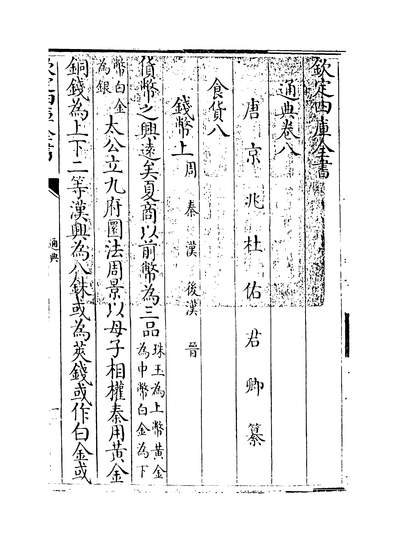 欽定四庫全書
通典卷八
唐京兆杜佑君卿纂
食貨八
錢幣上周秦漢後漢晉
貨幣之興遠矣夏商以前幣為三品珠玉為上幣黃金為中幣白金為下
幣白金為銀太公立九府圜法周景以母子相權秦用黃金
銅錢為上下二等漢興為八銖或為莢錢或作白金或
欽定四庫全書
通典
一